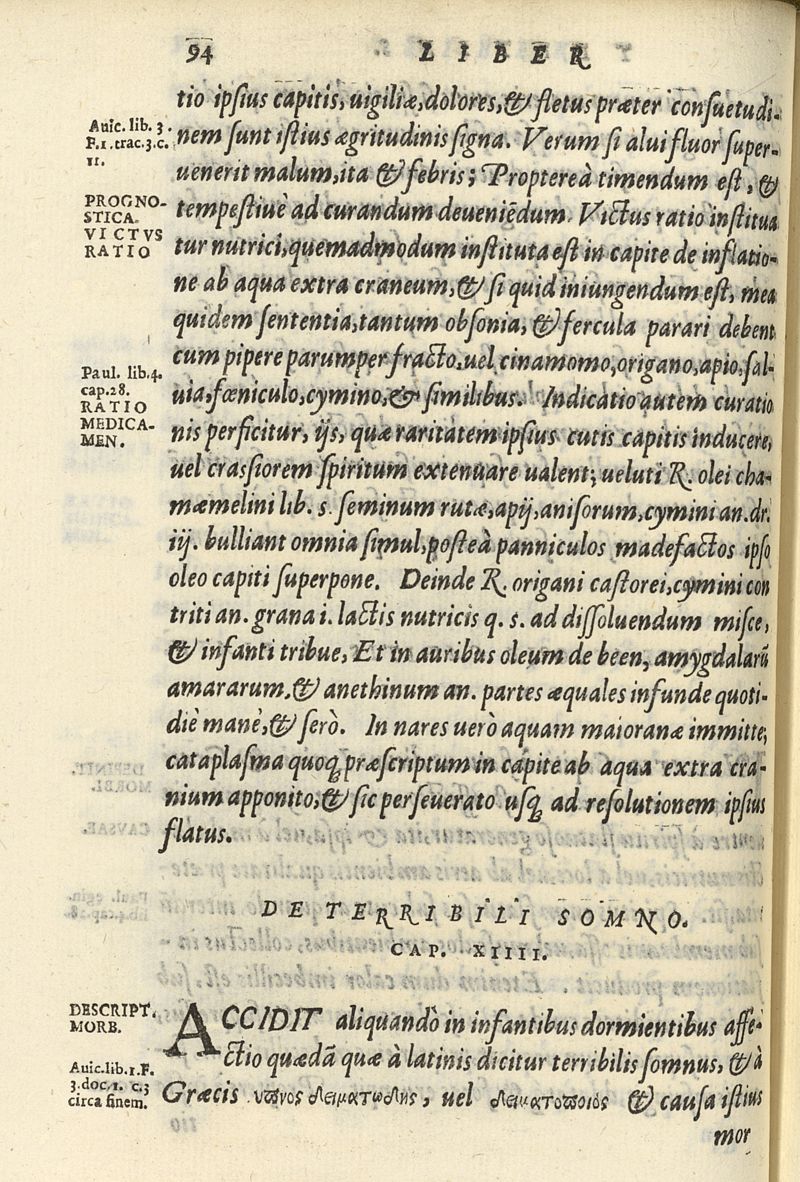 94 LIBER
tio ipsius capitis, uigiliæ, dolores, & fletus præter consuetudi-
Auic. lib. 3.
F. 1. trac. 3. c.
11.
nem sunt istius ægritudinis signa. Verum si alui fluor super-
uenerit malum, ita & febris; Propterea timendum est, &
PROGNO-
STICA.
VICTVS
RATIO
tempestiuè ad curandum deueniẽdum. Victus ratio institua
tur nutrici, quemadmodum instituta est in capite de inflatio-
ne ab aqua extra craneum, & si quid iniungendum est, mea
quidem sententia, tantum obsonia, & fercula parari debent
Paul. lib. 4.
cap. 28.
RATIO
MEDICA-
MEN.
cum pipere parumper fracto, uel cinamomo, origano, apio, sal-
uia, fœniculo, cymino, & similibus. Indicatio autem curatio
nis perficitur, ijs, quæ raritatem ipsius cutis capitis inducere,
uel crassiorem spiritum extenuare ualent; ueluti ℞. olei cha-
mæmelini lib. s. seminum rutæ, apij, anisorum, cymini an. dr.
iij. bulliant omnia simul, posteà panniculos madefactos ipso
oleo capiti superpone. Deinde ℞. origani castorei, cymini con
triti an. grana i. lactis nutricis q. s. ad dissoluendum misce,
& infanti tribue, Et in auribus oleum de been, amygdalarũ
amararum, & anethinum an. partes æquales infunde quoti-
diè manè, & serò. In nares uerò aquam maioranæ immitte,
cataplasma quoq; præscriptum in capite ab aqua extra cra-
nium apponito, & sic perseuerato usq; ad resolutionem ipsius
flatus.
DE TERRIBILI SOMNO.
CAP. XIIII.
DESCRIPT.
MORB.
ACCIDIT aliquandò in infantibus dormientibus affe-
Auic. lib. 1. F.
3. doc. 1. c. 3
circa finem.
ctio quædã quæ à latinis dicitur terribilis somnus, & à
Græcis ὕπνος δειματώδης, uel δειματοποιὸς & causa istius
mor